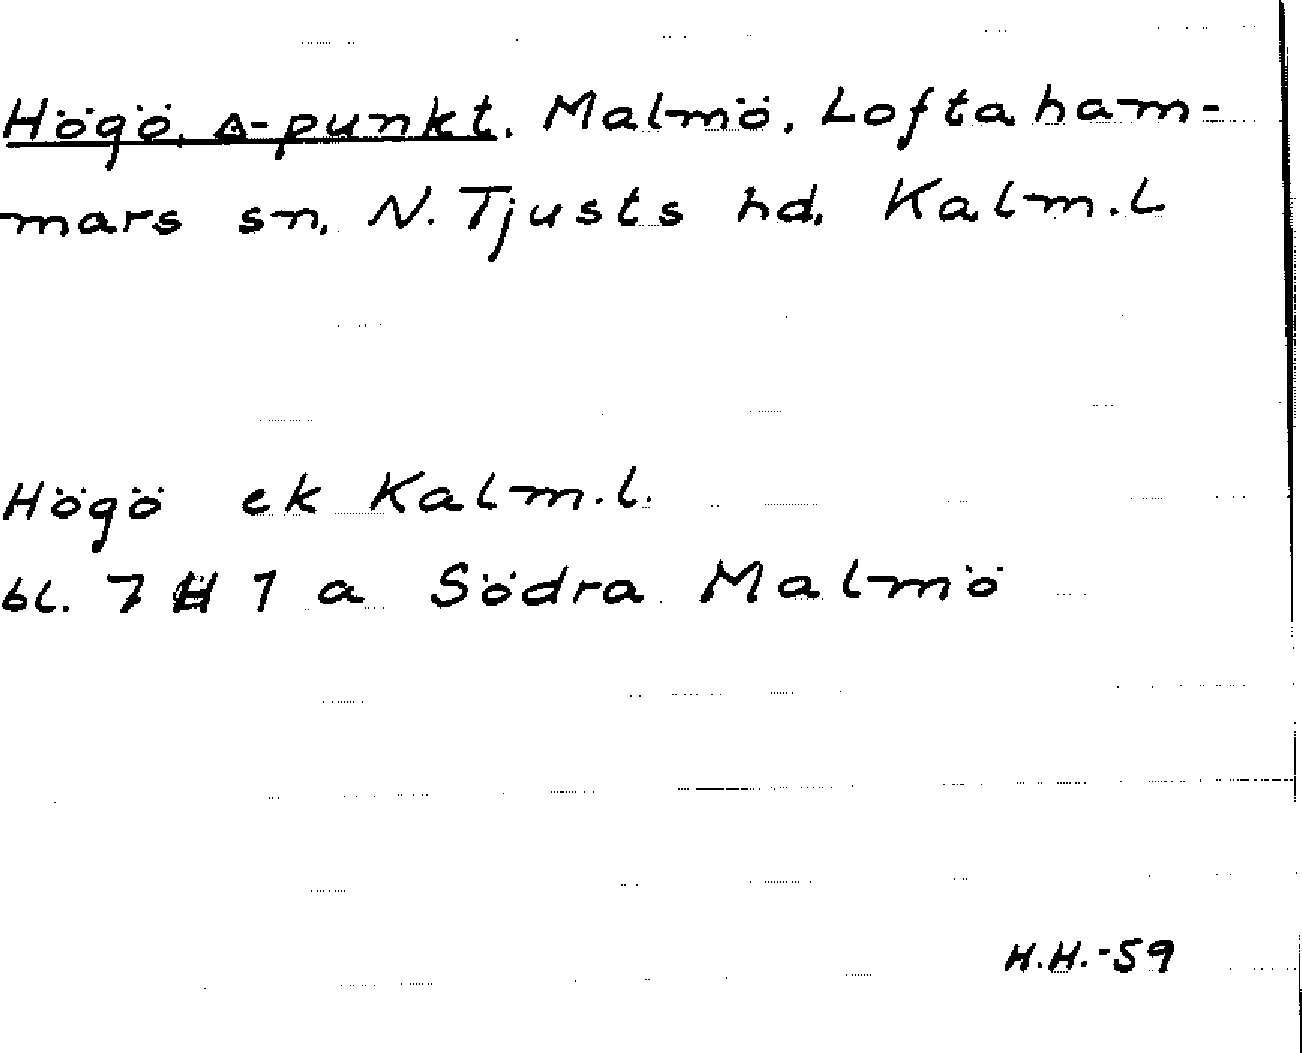 Högö, Δ-punkt. Malmö, Loftaham-
mars sn, N. Tjusts hd, Kalm.L
Högö ek Kalm.l.
bl. 7 H 1 a Södra Malmö
H.H.-59